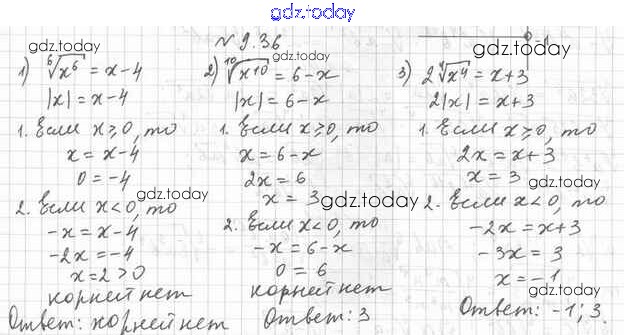 gdz.today
№ 9.36
1) ⁶√x⁶ = x-4
|x| = x-4
1. Если x⩾0, то
x = x-4
0 = -4
2. Если x<0, то
-x = x-4
-2x = -4
x=2>0
корней нет
Ответ: корней нет
2) ¹⁰√x¹⁰ = 6-x
|x| = 6-x
1. Если x⩾0, то
x = 6-x
2x = 6
x = 3
2. Если x<0, то
-x = 6-x
0 = 6
корней нет
Ответ: 3
3) 2⁴√x⁴ = x+3
2|x| = x+3
1. Если x⩾0, то
2x = x+3
x = 3
2. Если x<0, то
-2x = x+3
-3x = 3
x = -1
Ответ: -1; 3.
gdz.today
gdz.today
gdz.today
gdz.today
gdz.today
gdz.today
gdz.today
gdz.today